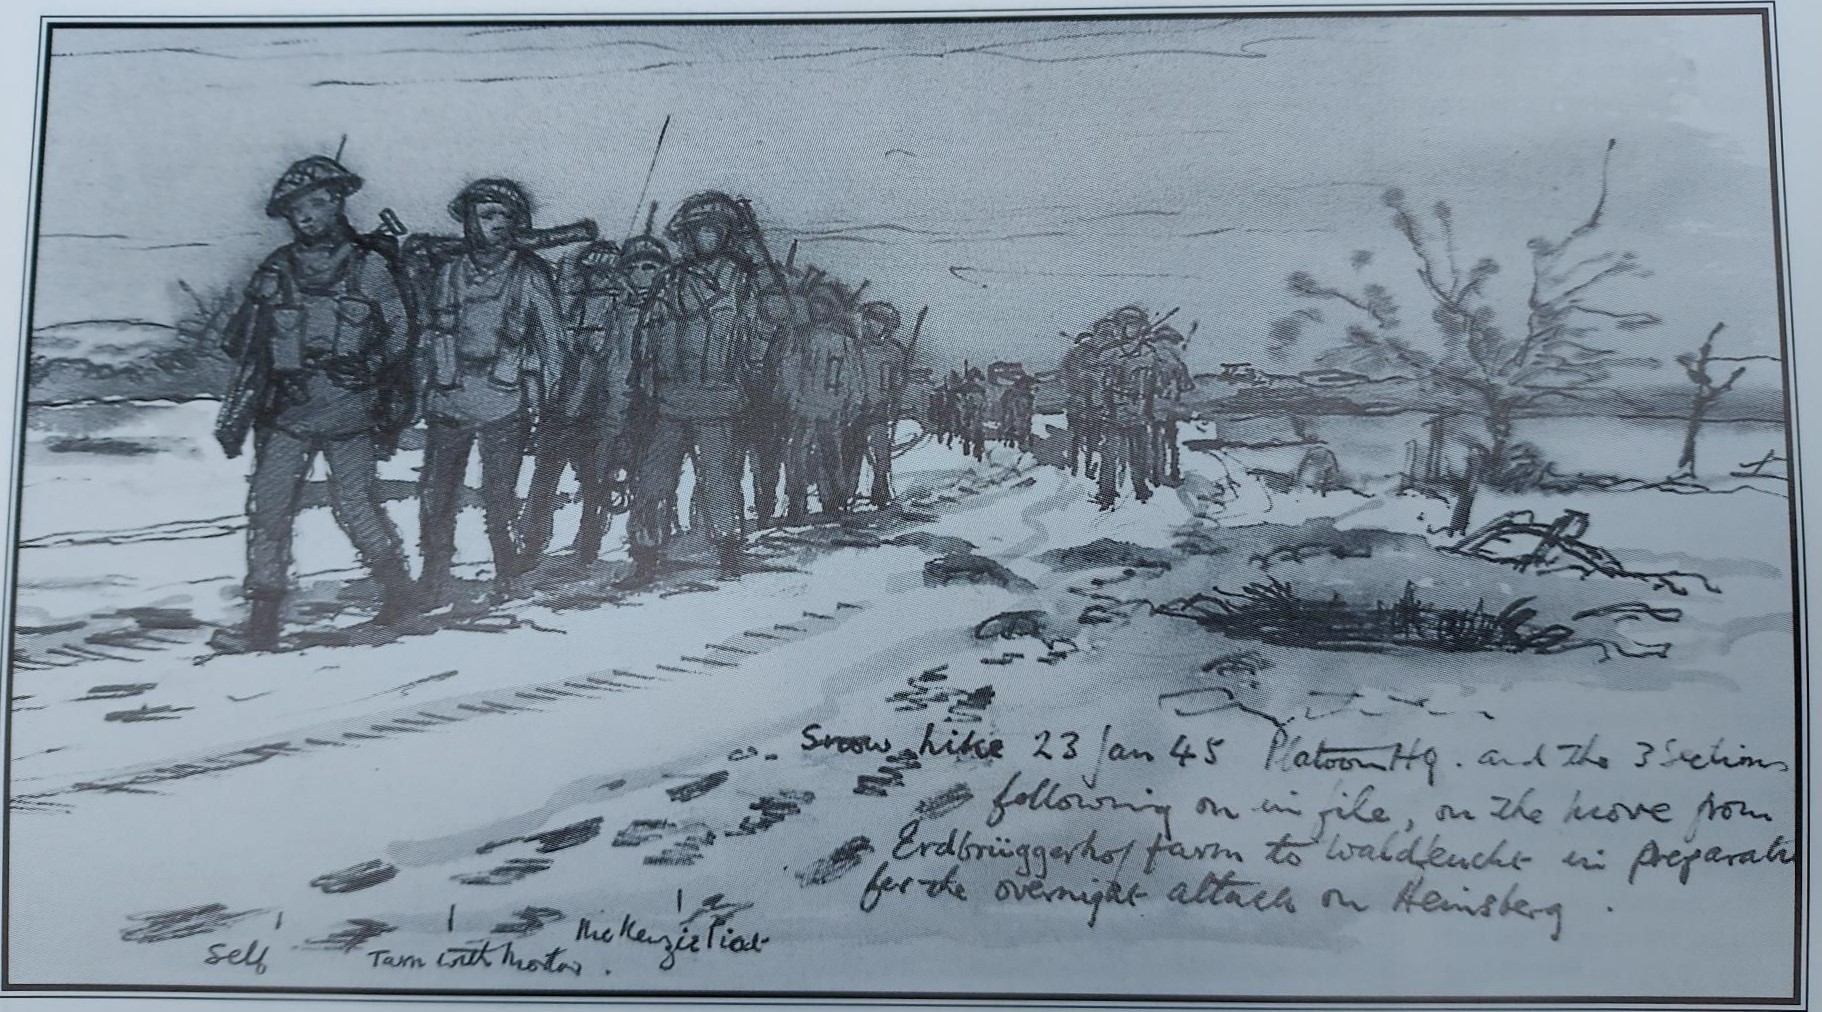 Snow hike 23 Jan 45 Platoon HQ. and the 3 Sections
following on in file, on the move from
Erdbrüggerhof farm to Waldfeucht in preparati
for the overnight attack on Heinsberg .
Self
Tarn with Mortar .
McKenzie Piat